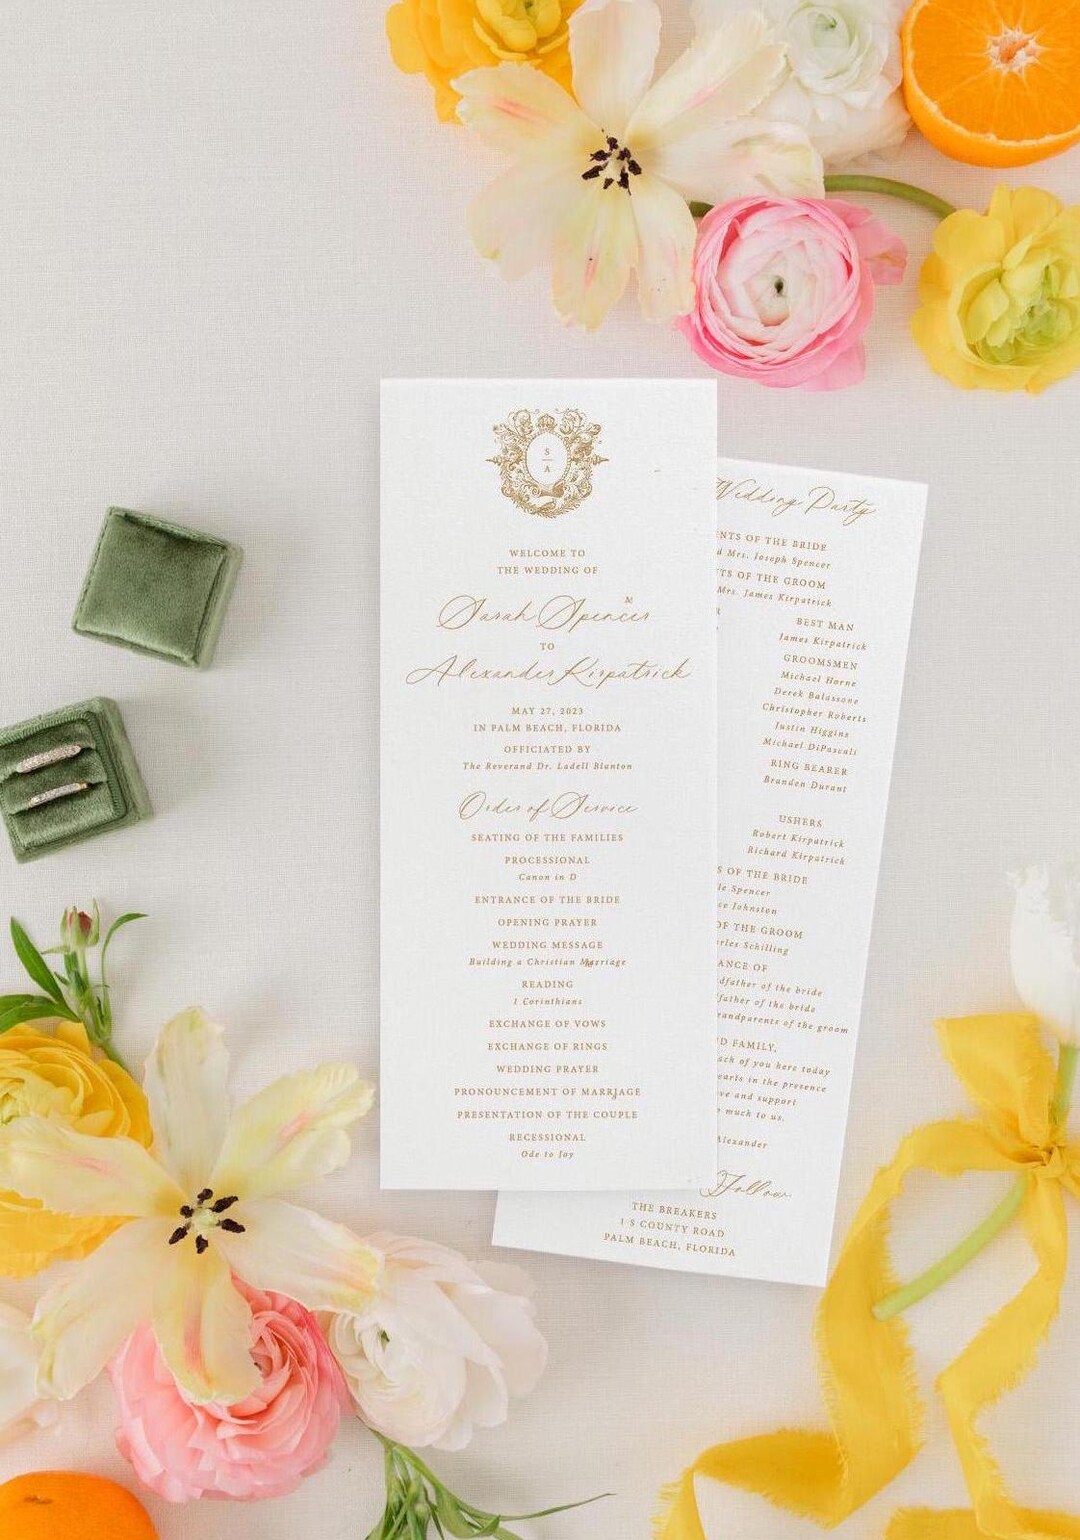 S
A
WELCOME TO
THE WEDDING OF
Sarah Spencer
TO
Alexander Kirpatrick
MAY 27, 2023
IN PALM BEACH, FLORIDA
OFFICIATED BY
The Reverand Dr. Ladell Blanton
Order of Service
SEATING OF THE FAMILIES
PROCESSIONAL
Canon in D
ENTRANCE OF THE BRIDE
OPENING PRAYER
WEDDING MESSAGE
Building a Christian Marriage
READING
1 Corinthians
EXCHANGE OF VOWS
EXCHANGE OF RINGS
WEDDING PRAYER
PRONOUNCEMENT OF MARRIAGE
PRESENTATION OF THE COUPLE
RECESSIONAL
Ode to Joy
Wedding Party
NTS OF THE BRIDE
d Mrs. Joseph Spencer
TS OF THE GROOM
Mrs. James Kirpatrick
BEST MAN
James Kirpatrick
GROOMSMEN
Michael Horne
Derek Balassone
Christopher Roberts
Justin Higgins
Michael DiPascali
RING BEARER
Branden Durant
USHERS
Robert Kirpatrick
Richard Kirpatrick
S OF THE BRIDE
le Spencer
ce Johnston
OF THE GROOM
rles Schilling
ANCE OF
dfather of the bride
father of the bride
randparents of the groom
D FAMILY,
ach of you here today
earts in the presence
ve and support
o much to us.
Alexander
Follow
THE BREAKERS
1 S COUNTY ROAD
PALM BEACH, FLORIDA